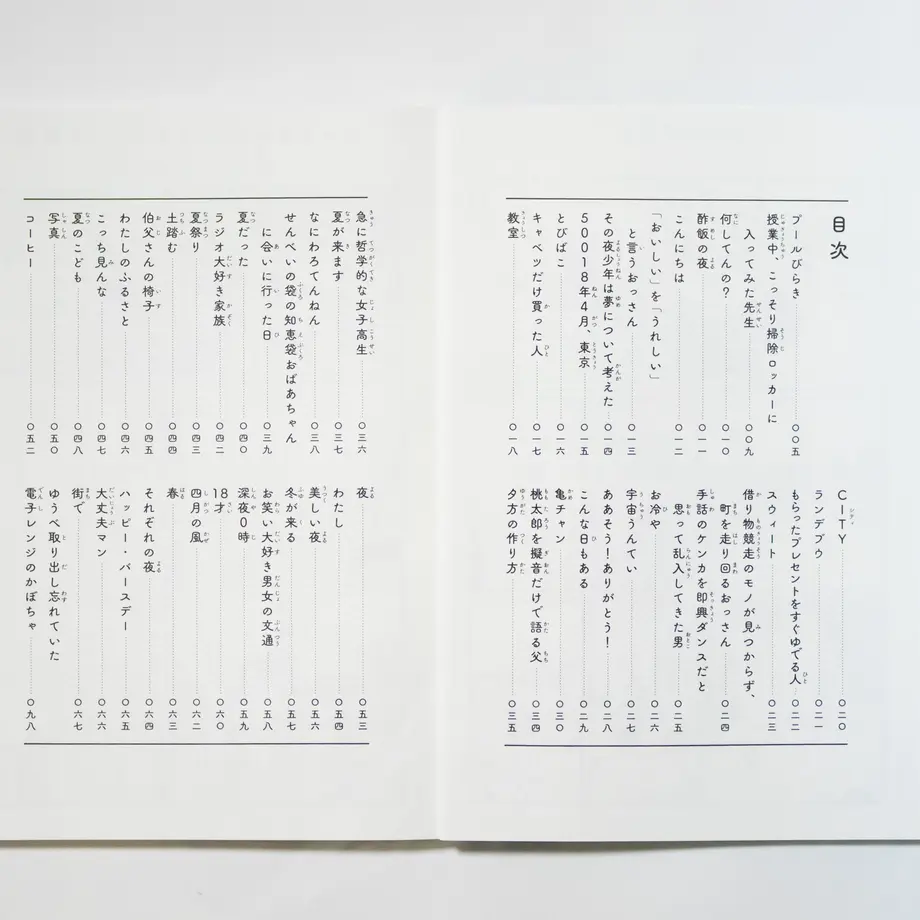 目次
プールびらき……〇〇五
授業中、こっそり掃除ロッカーに
入ってみた先生……〇〇九
何してんの?……〇一〇
酢飯の夜……〇一一
こんにちは……〇一二
「おいしい」を「うれしい」
と言うおっさん……〇一三
その夜少年は夢について考えた……〇一四
50018年4月、東京……〇一五
とびばこ……〇一六
キャベツだけ買った人……〇一七
教室……〇一八
CITY……〇二〇
ランデブウ……〇二一
もらったプレゼントをすぐゆでる人……〇二二
スウィート……〇二三
借り物競走のモノが見つからず、
町を走り回るおっさん……〇二四
手話のケンカを即興ダンスだと
思って乱入してきた男……〇二五
お冷や……〇二六
宇宙うんてい……〇二七
ああそう!ありがとう!……〇二八
こんな日もある……〇二九
亀チャン……〇三〇
桃太郎を擬音だけで語る父……〇三四
夕方の作り方……〇三五
急に哲学的な女子高生……〇三六
夏が来ます……〇三七
なにわろてんねん……〇三八
せんべいの袋の知恵袋おばあちゃん
に会いに行った日……〇三九
夏だった……〇四〇
ラジオ大好き家族……〇四二
夏祭り……〇四三
土踏む……〇四四
伯父さんの椅子……〇四五
わたしのふるさと……〇四六
こっち見んな……〇四七
夏のこども……〇四八
写真……〇五〇
コーヒー……〇五二
夜……〇五三
わたし……〇五四
美しい夜……〇五六
冬が来る……〇五七
お笑い大好き男女の文通……〇五八
深夜0時……〇五九
18才……〇六〇
四月の風……〇六二
春……〇六三
それぞれの夜……〇六四
ハッピー・バースデー……〇六五
大丈夫マン……〇六六
街で……〇六七
ゆうべ取り出し忘れていた
電子レンジのかぼちゃ……〇九八